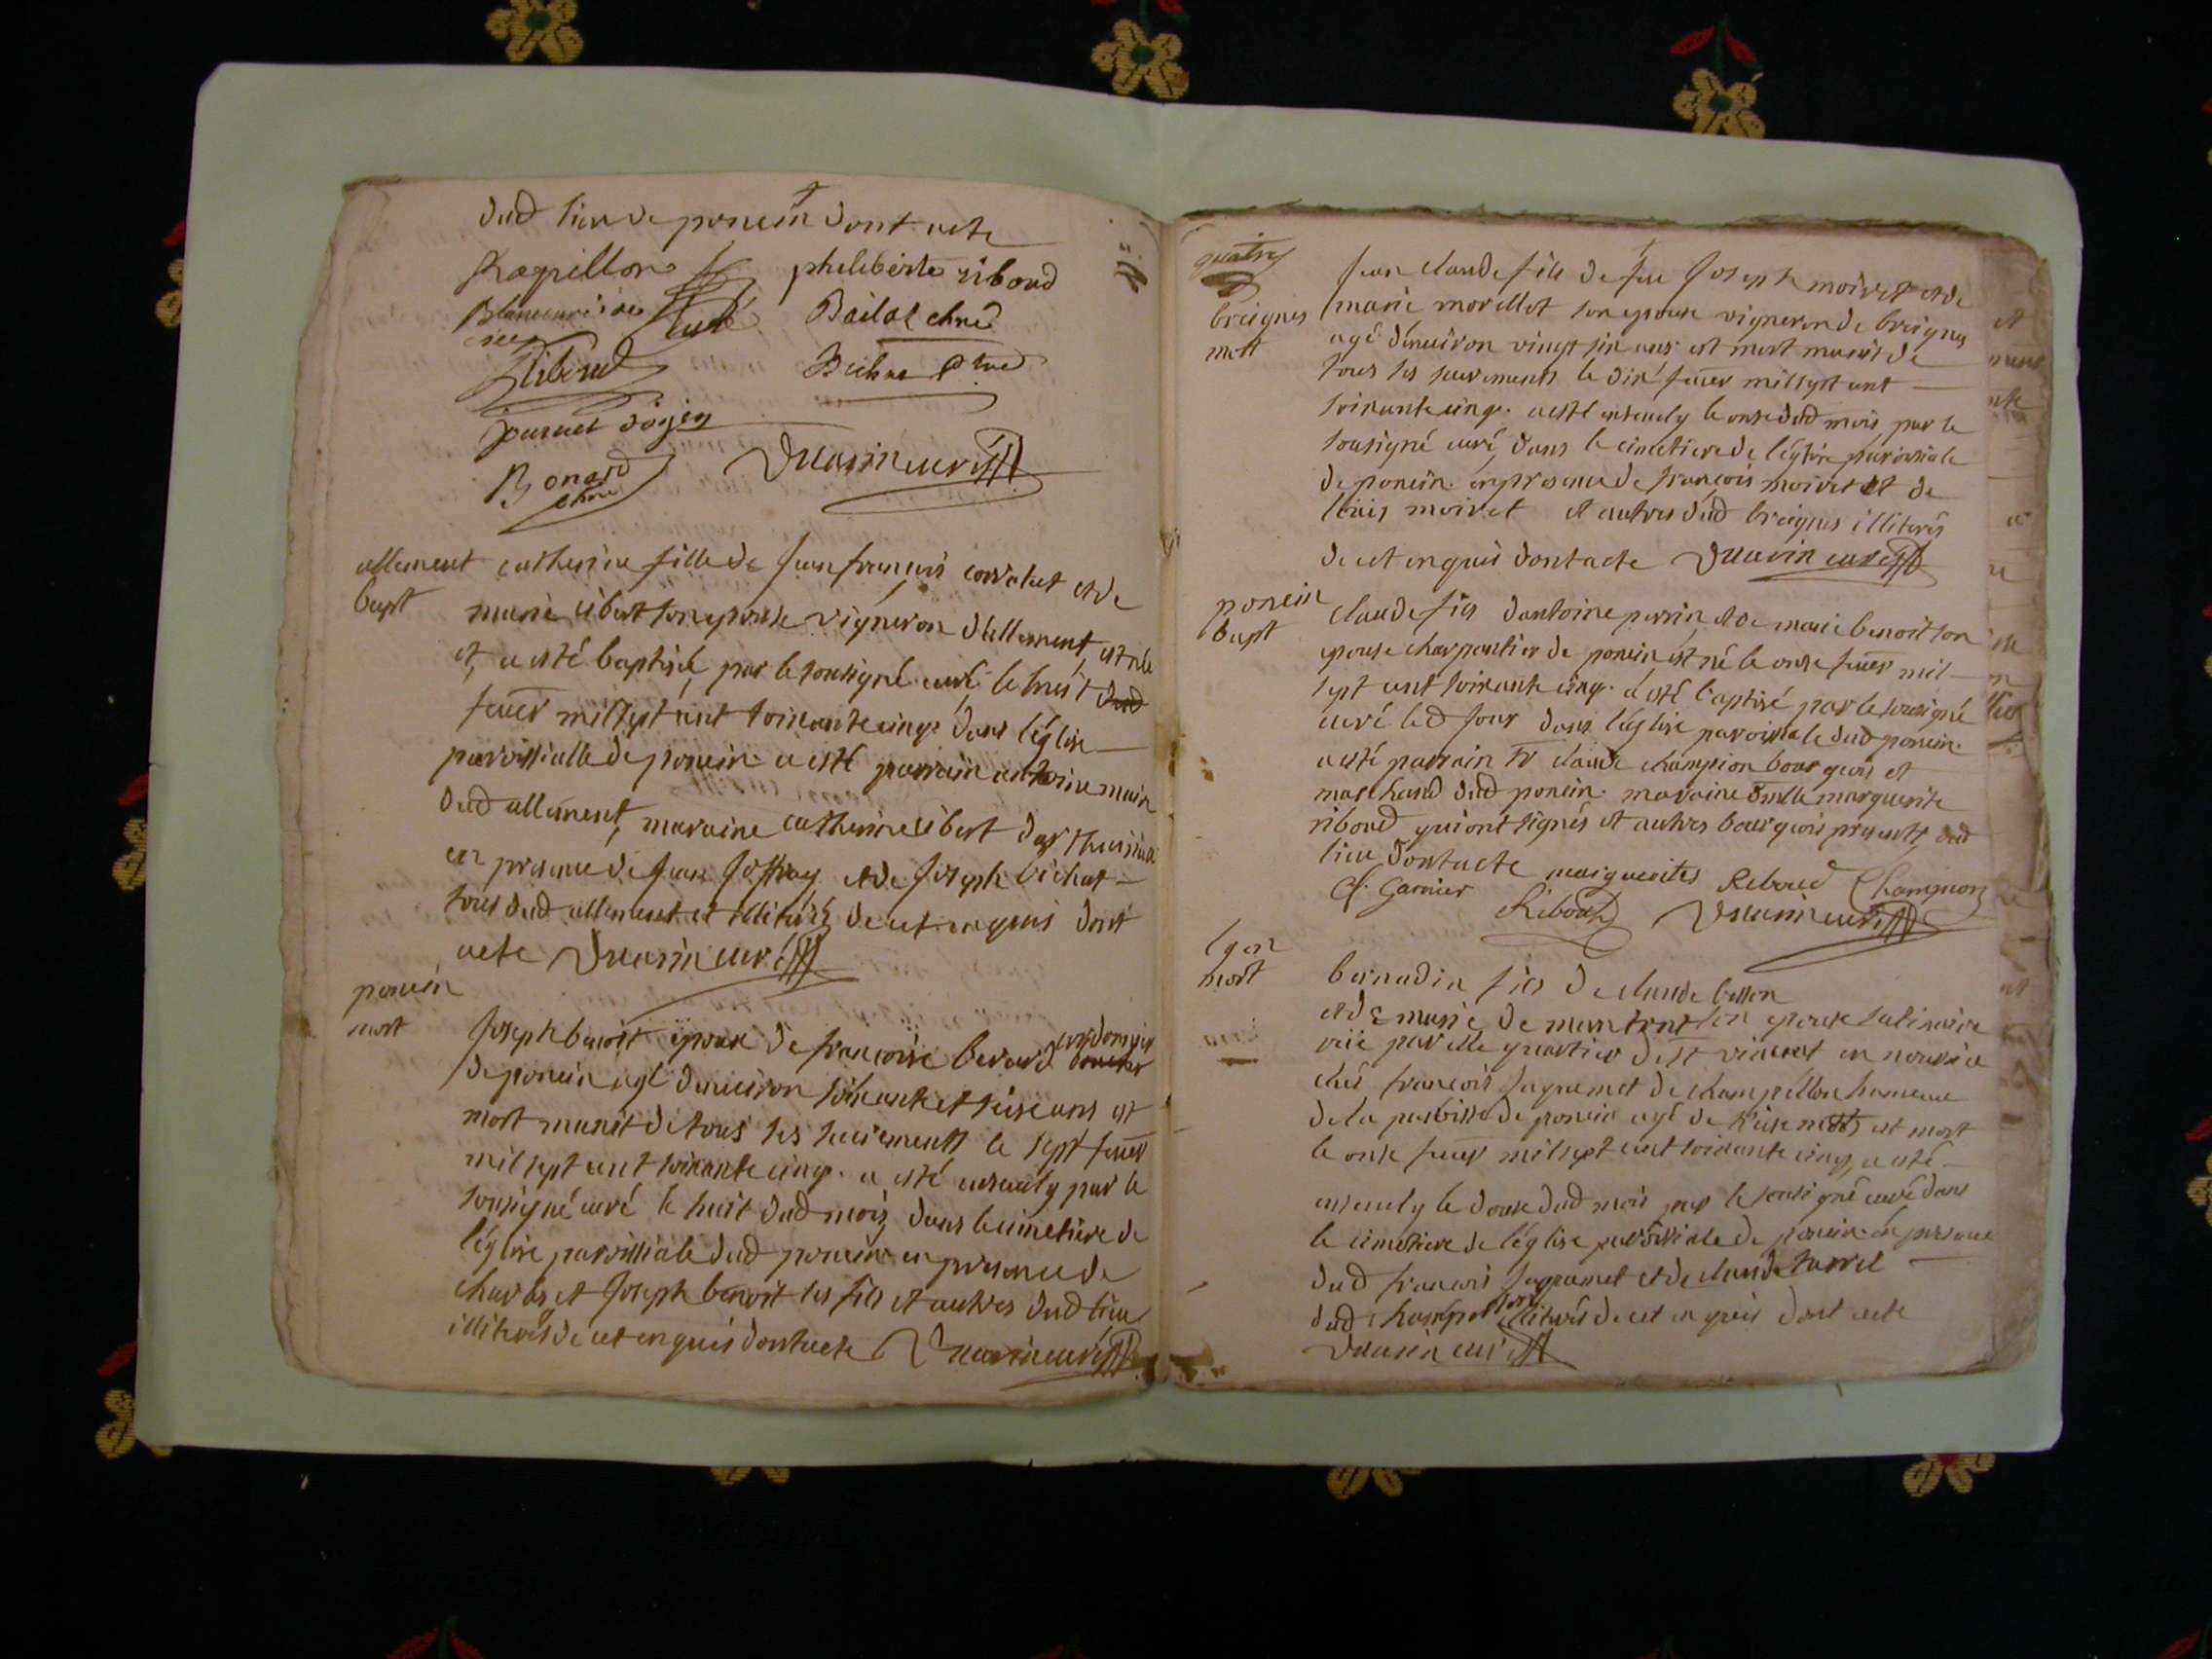 dud lieu de poncin dont acte
Rapillon
pheliberte riboud
curé
Bailat chne
Riboud
Bichat chne
journet doyen
Bonard
chne
curé
allement
bapt
catherine fille de jean françois corratet et de
marie sibert son epouse vigneron dallement, est née
et a esté baptisée par le sousigné curé le huit dud
fever mil sept cent soixante cinq. dans l'églisse
paroissialle de poncin a esté parrain antoine
dud allement, maraine catherine sibert
en presence de jean joffray et de joseph bichat
tous dud allement et illiterés de cet enquis dont
acte
curé
poncin
mort
joseph benoit epoux de françoise berard cordonnier
de poncin agé denviron soixante et seise ans est
mort munit de tous ses sacrements le sept fever
mil sept cent soixante cinq. a esté ensevely par le
sousigné curé le huit dud mois, dans le cimetiere de
l'églisse paroissiale dud poncin en presence de
charles et joseph benoit ses fils et autres dud lieu
illiterés de cet enquis dont acte
curé
quatre
breignes
mort
jean claude fils de feu joseph moiret et de
marie morellet son epouse vigneron de breignes
agé denviron vingt six ans est mort munit de
tous ses sacrements le dix fever mil sept cent
soixante cinq. a esté ensevely le onse dud mois par le
sousigné curé, dans le cimetiere de l'églisse paroissiale
de poncin. en presence de françois moiret et de
louis moiret et autres dud breignes illiterés
de cet enquis dont acte
curé
poncin
bapt
claude fils dantoine perrin et de marie benoit son
epouse charpantier de poncin est né le onse fever mil
sept cent soixante cinq. a esté baptisé par le sousigné
curé led jour dans l'églisse paroissiale dud poncin.
a esté parrain sr claude champion bourgeois et
marchand dud poncin. maraine dmlle marguerite
riboud qui ont signés et autres bourgeois presents dud
lieu dont acte
marguerites Reboud Champion
Cl. Garnier
Riboud
curé
lyon
mort
bernadin fils de claude
et de marie de son epouse
quartier de st vincent en nourice
ches françois jaquemet de champollon hameau
de la paroisse de poncin agé de seise mois est mort
le onse fever mil sept cent soixante cinq, a esté
ensevely le douse dud mois par le sousigné curé dans
le cimetiere de l'églisse paroissiale de poncin en presence
dud françois jaquemet et de claude
dud champollon illiterés de cet enquis dont acte
curé